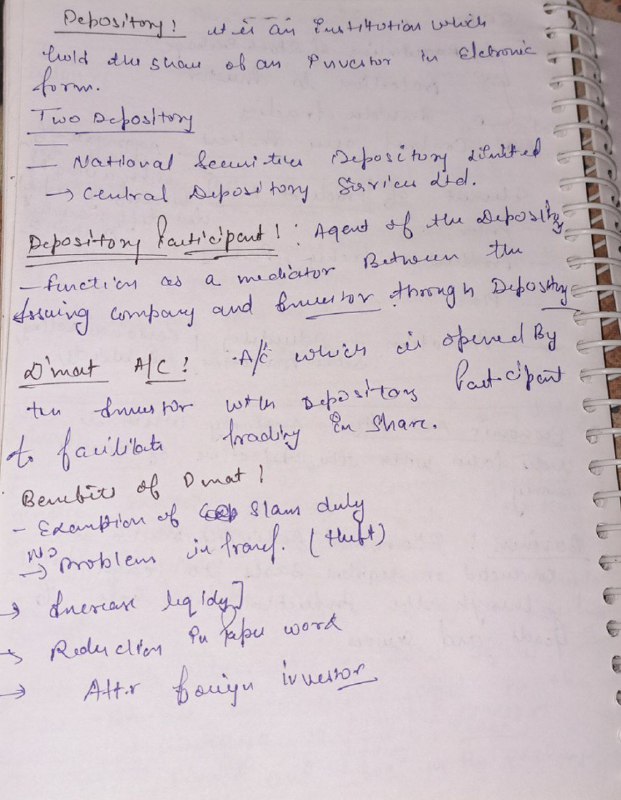 Depository! it is an Institution which
hold the share of an Investor in Elctronic
form.
Two Depository
— National Securities Depository Limited
→ Central Depository Services Ltd.
Depository Participant!: Agent of the Depository
— function as a mediator Between the
Issuing company and Investor through Depository
D'mat A/C! A/c which is opened By
the Investor with Depository Participant
to facilitate trading in share.
Benefits of Dmat!
- Exemption of Stam duty
NO
→ Problem in transf. (theft)
→ Increase liqidy]
→ Reduction in Paper work
→ Attr foriegn investor